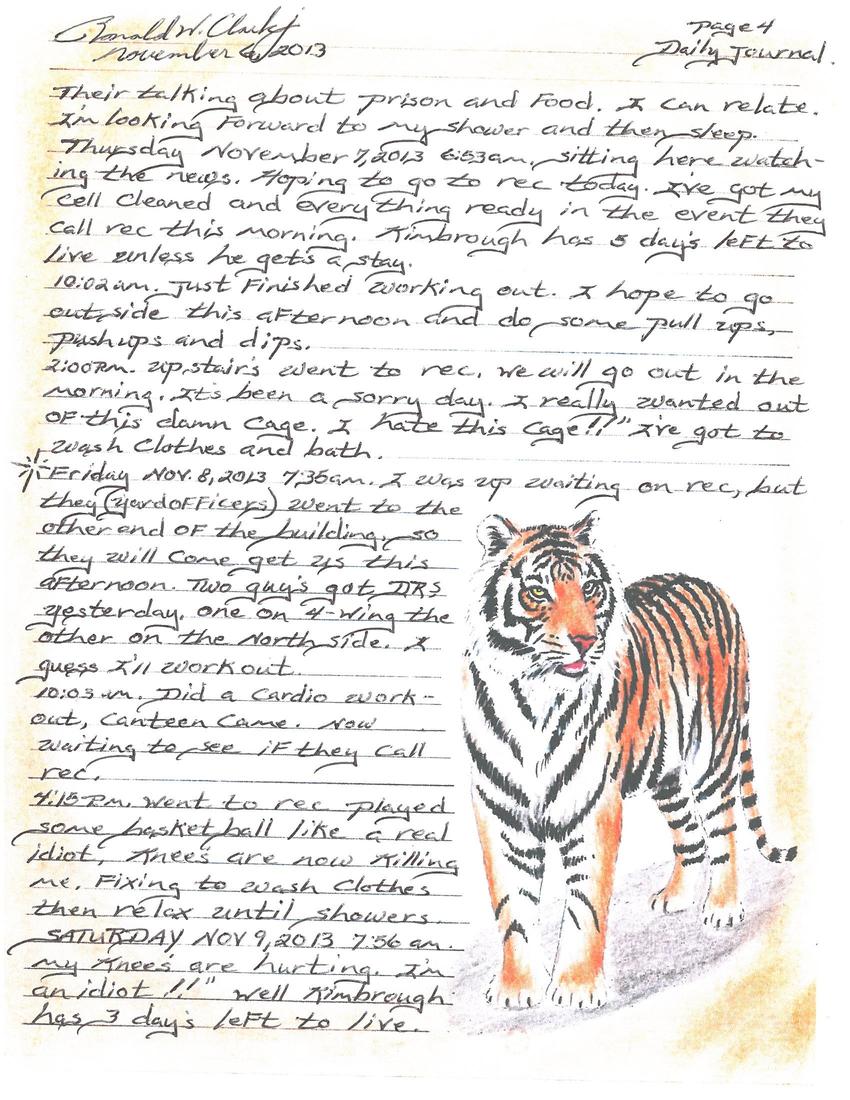 Ronald W. Clark Jr
page 4
November 6, 2013
Daily Journal.
Their talking about prison and Food. I can relate.
I'm looking Forward to my shower and then sleep.
Thursday November 7, 2013 6:53am. sitting here watch-
ing the news. Hoping to go to rec today. I've got my
cell cleaned and everything ready in the event they
call rec this morning. Kimbrough has 5 day's left to
live unless he get's a stay.
10:02am. Just Finished working out. I hope to go
outside this afternoon and do some pull ups,
pushups and dips.
2:00PM. upstair's went to rec. we will go out in the
morning. It's been a sorry day. I really wanted out
OF this damn cage. I hate this cage!!" I've got to
wash clothes and bath.
Friday Nov. 8, 2013 7:35am. I was up waiting on rec, but
they (yard officers) went to the
other end OF the building, so
they will come get us this
afternoon. Two guy's got DRs
yesterday, one on 4-wing the
other on the North side. I
guess I'll work out.
10:03 am. Did a cardio work-
out, Canteen Came. Now
waiting to see if they call
rec.
4:15PM. Went to rec played
some basketball like a real
idiot, Knee's are now killing
me. Fixing to wash clothes
then relax until showers.
SATURDAY NOV 9, 2013 7:56 am.
my knee's are hurting. I'm
an idiot!!" Well Kimbrough
has 3 day's left to live.